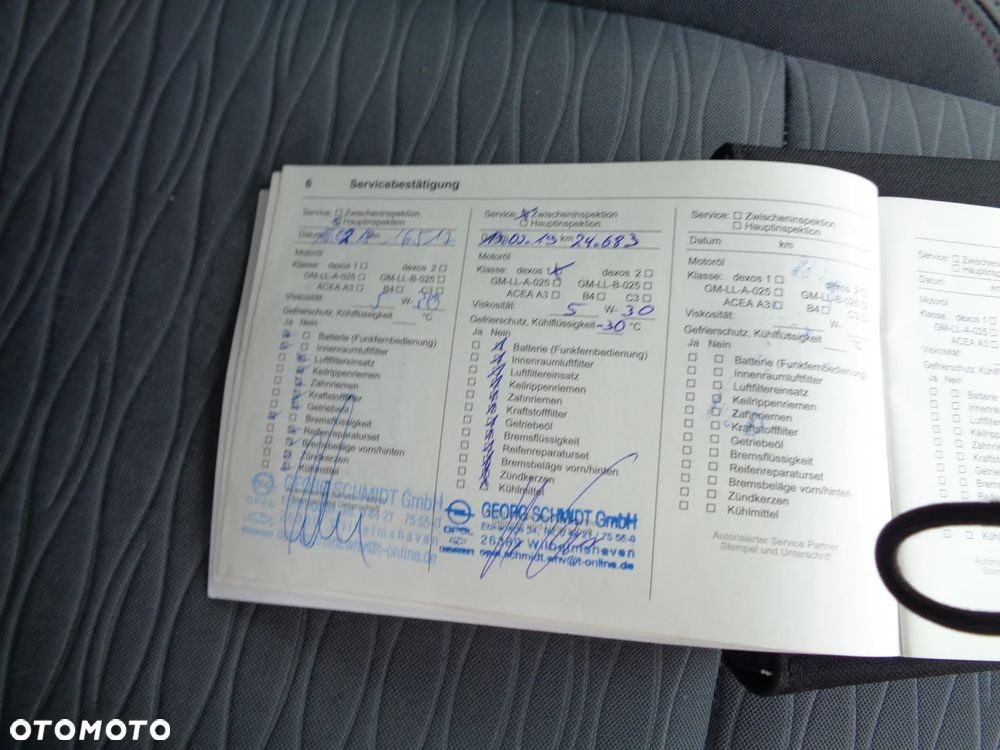 6 Servicebestätigung
Service: Zwischeninspektion
Hauptinspektion
Datum 16.02.18 km 16.517
Motoröl
Klasse: dexos 1 dexos 2
GM-LL-A-025 GM-LL-B-025
ACEA A3 B4 C3
Viskosität: 5 W-30
Gefrierschutz, Kühlflüssigkeit °C
Ja Nein
Batterie (Funkfernbedienung)
Innenraumluftfilter
Luftfiltereinsatz
Keilrippenriemen
Zahnriemen
Kraftstofffilter
Getriebeöl
Bremsflüssigkeit
Reifenreparaturset
Bremsbeläge vorn/hinten
Zündkerzen
Kühlmittel
GEORG SCHMIDT GmbH
OPEL
Service: Zwischeninspektion
Hauptinspektion
Datum km 24.683
Klasse: dexos 1 dexos 2
GM-LL-A-025 GM-LL-B-025
ACEA A3 B4 C3
Viskosität: 5 W-30
Gefrierschutz, Kühlflüssigkeit -30 °C
Ja Nein
Batterie (Funkfernbedienung)
Innenraumluftfilter
Luftfiltereinsatz
Keilrippenriemen
Zahnriemen
Kraftstofffilter
Getriebeöl
Bremsflüssigkeit
Reifenreparaturset
Bremsbeläge vorn/hinten
Zündkerzen
Kühlmittel
GEORG SCHMIDT GmbH
OPEL
26389 Wilhelmshaven
CHEVROLET opel.schmidt.whv@t-online.de
Service: Zwischeninspektion
Hauptinspektion
Datum km
Motoröl
Klasse: dexos 1 dexos 2
GM-LL-A-025 GM-LL-B-025
ACEA A3 B4 C3
Viskosität: W-
Gefrierschutz, Kühlflüssigkeit °C
Ja Nein
Batterie (Funkfernbedienung)
Innenraumluftfilter
Luftfiltereinsatz
Keilrippenriemen
Zahnriemen
Kraftstofffilter
Getriebeöl
Bremsflüssigkeit
Reifenreparaturset
Bremsbeläge vorn/hinten
Zündkerzen
Kühlmittel
Autorisierter Service Partner
Stempel und Unterschrift
Service:
Datum
Motoröl
Klasse:
Viskosität:
Ja Nein
OTOMOTO